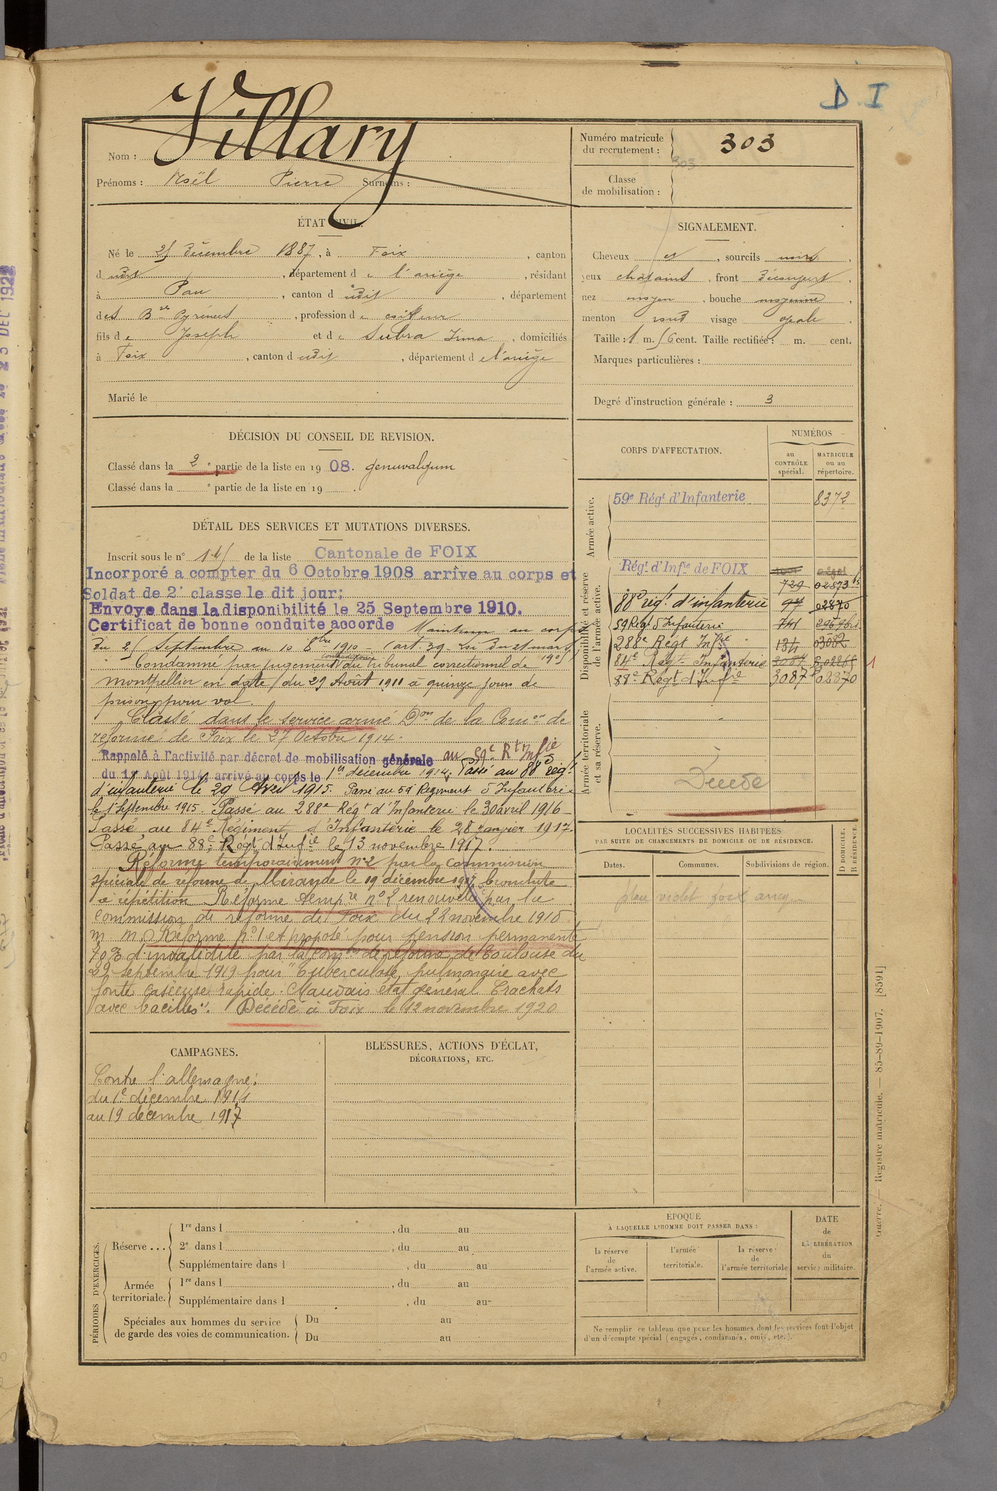 D I
Villary
Nom :
Prénoms : Noël Pierre Surnoms :
Numéro matricule du recrutement : 303
303
Classe de mobilisation :
ÉTAT CIVIL.
Né le 25 Décembre 1887, à Foix, canton
d udit, département d e l'ariège, résidant
à Pau, canton d udit, département
des Bses Pyrénées, profession d e coiffeur
fils d e Joseph et d e Subra Irma, domiciliés
à Foix, canton d udit, département d e l'ariège
Marié le
SIGNALEMENT.
Cheveux et, sourcils noirs,
yeux châtains, front découvert,
nez moyen, bouche moyenne,
menton rond visage ovale.
Taille : 1 m. 56 cent. Taille rectifiée : m. cent.
Marques particulières :
Degré d'instruction générale : 3
DÉCISION DU CONSEIL DE REVISION.
Classé dans la 2e partie de la liste en 1908.
Classé dans la e partie de la liste en 19 .
CORPS D'AFFECTATION.
NUMÉROS
au CONTRÔLE spécial.
MATRICULE ou au répertoire.
Armée active.
59e Régt d'Infanterie 8372
Disponibilité et réserve de l'armée active.
Régt d'Infie de FOIX
729 02873 bis
88e rég. d'infanterie 02870
59 Régt d'Infanterie 741
288e Régt Infie 1314
84e Régt Infanterie
88e Régt d'Infie 3087 02870
Armée territoriale et sa réserve.
Décédé
DÉTAIL DES SERVICES ET MUTATIONS DIVERSES.
Inscrit sous le n° de la liste Cantonale de FOIX
Incorporé a compter du 6 Octobre 1908 arrive au corps et
Soldat de 2e classe le dit jour;
Envoye dans la disponibilité le 25 Septembre 1910.
Certificat de bonne conduite accorde Maintenu au corps
Du 25 Septembre au 10 8bre 1910. (art. 39. Loi du 21 mars 1905)
Condamné par jugement contradictoire du tribunal correctionnel de
Montpellier en date du 29 Août 1911 à quinze jours de
prison pour vol.
Classé dans le service armé Don de la Comon de
reforme de Foix le 27 Octobre 1914.
Rappelé à l'activité par décret de mobilisation générale au 59e Rt Infie
du 1er Août 1914, arrivé au corps le 1er décembre 1914, Passé au 88e rég.
d'infanterie le 29 Avril 1915. Passé au 59 Régiment d'Infanterie
le 1 Septembre 1915. Passé au 288e Rég. d'Infanterie le 30 avril 1916
Passé au 84e Régiment d'Infanterie le 28 janvier 1917.
Passé au 88e Régt d'Infie le 13 novembre 1917.
Réformé temporairement n°2 par la commission
spéciale de réforme de Mirande le 19 décembre 1917 Bronchite
à répétition Réforme tempre n°2 renouvelée par la
commission de réforme de Foix du 22 novembre 1918
m m. Réformé n°1 et proposé pour pension permanente
70% d'invalidité par la comon de réforme de Toulouse du
29 septembre 1919 pour "Tuberculose pulmonaire avec
fonte caséeuse rapide. Mauvais état général Crachats
avec bacilles". Décédé à Foix le 12 novembre 1920
LOCALITÉS SUCCESSIVES HABITÉES
PAR SUITE DE CHANGEMENTS DE DOMICILE OU DE RÉSIDENCE.
Dates. Communes. Subdivisions de région.
D DOMICILE. R RÉSIDENCE.
CAMPAGNES.
Contre l'allemagne:
du 1er décembre 1914
au 19 décembre 1917
BLESSURES, ACTIONS D'ÉCLAT,
DÉCORATIONS, ETC.
PÉRIODES D'EXERCICES.
Réserve ...
1re dans l , du au
2e dans l , du au
Supplémentaire dans l , du au
Armée territoriale.
1re dans l , du au
Supplémentaire dans l , du au
Spéciales aux hommes du service de garde des voies de communication.
Du au
Du au
ÉPOQUE
À LAQUELLE L'HOMME DOIT PASSER DANS :
la réserve de l'armée active.
l'armée territoriale.
la réserve de l'armée territoriale
DATE de LA LIBÉRATION du service militaire.
Ne remplir ce tableau que pour les hommes dont les services font l'objet
d'un décompte spécial (engagés, condamnés, omis, etc.).
Guerre. — Registre matricule. — 85-89-1907. [8591]